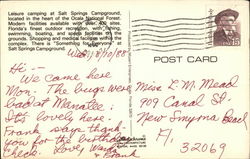 Leisure camping at Salt Springs Campground,
located in the heart of the Ocala National Forest.
Modern facilities available with over 400 sites.
Florida's finest recreation here, with fishing,
swimming, boating, and sports facilities on the
grounds. Shopping and medical facilities within the
complex. There is "Something for Everyone" at
Salt Springs Campground.
POST CARD
Hi -
We came here
Mon. The bugs were
bad at Manatee.
It's lovely here.
Frank says thank
you for the birthday
check. Love,
Frank
Miss L. M. Mead
909 Canal St
New Smyrna Beach
Fl,
32069